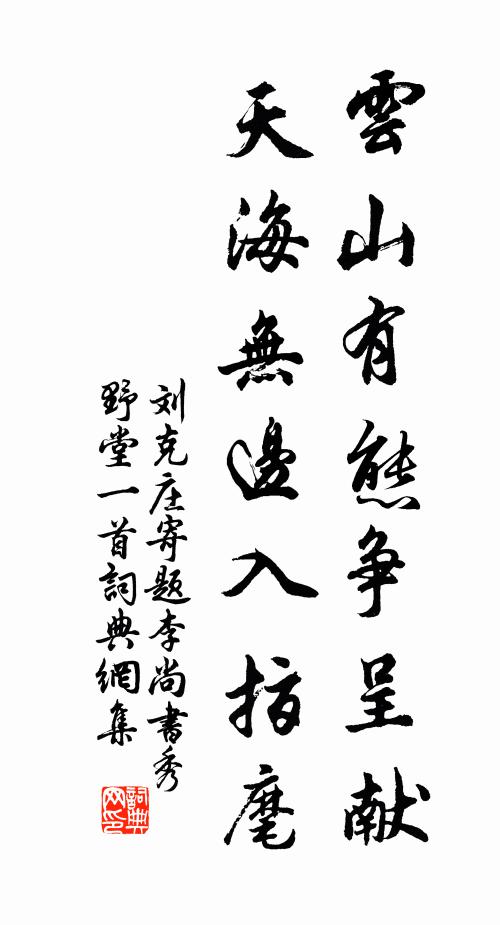 雲山有態争呈献
天海無邊入指麾
刘克庄寄题李尚書秀
野堂一首詞典網集
詞典網印